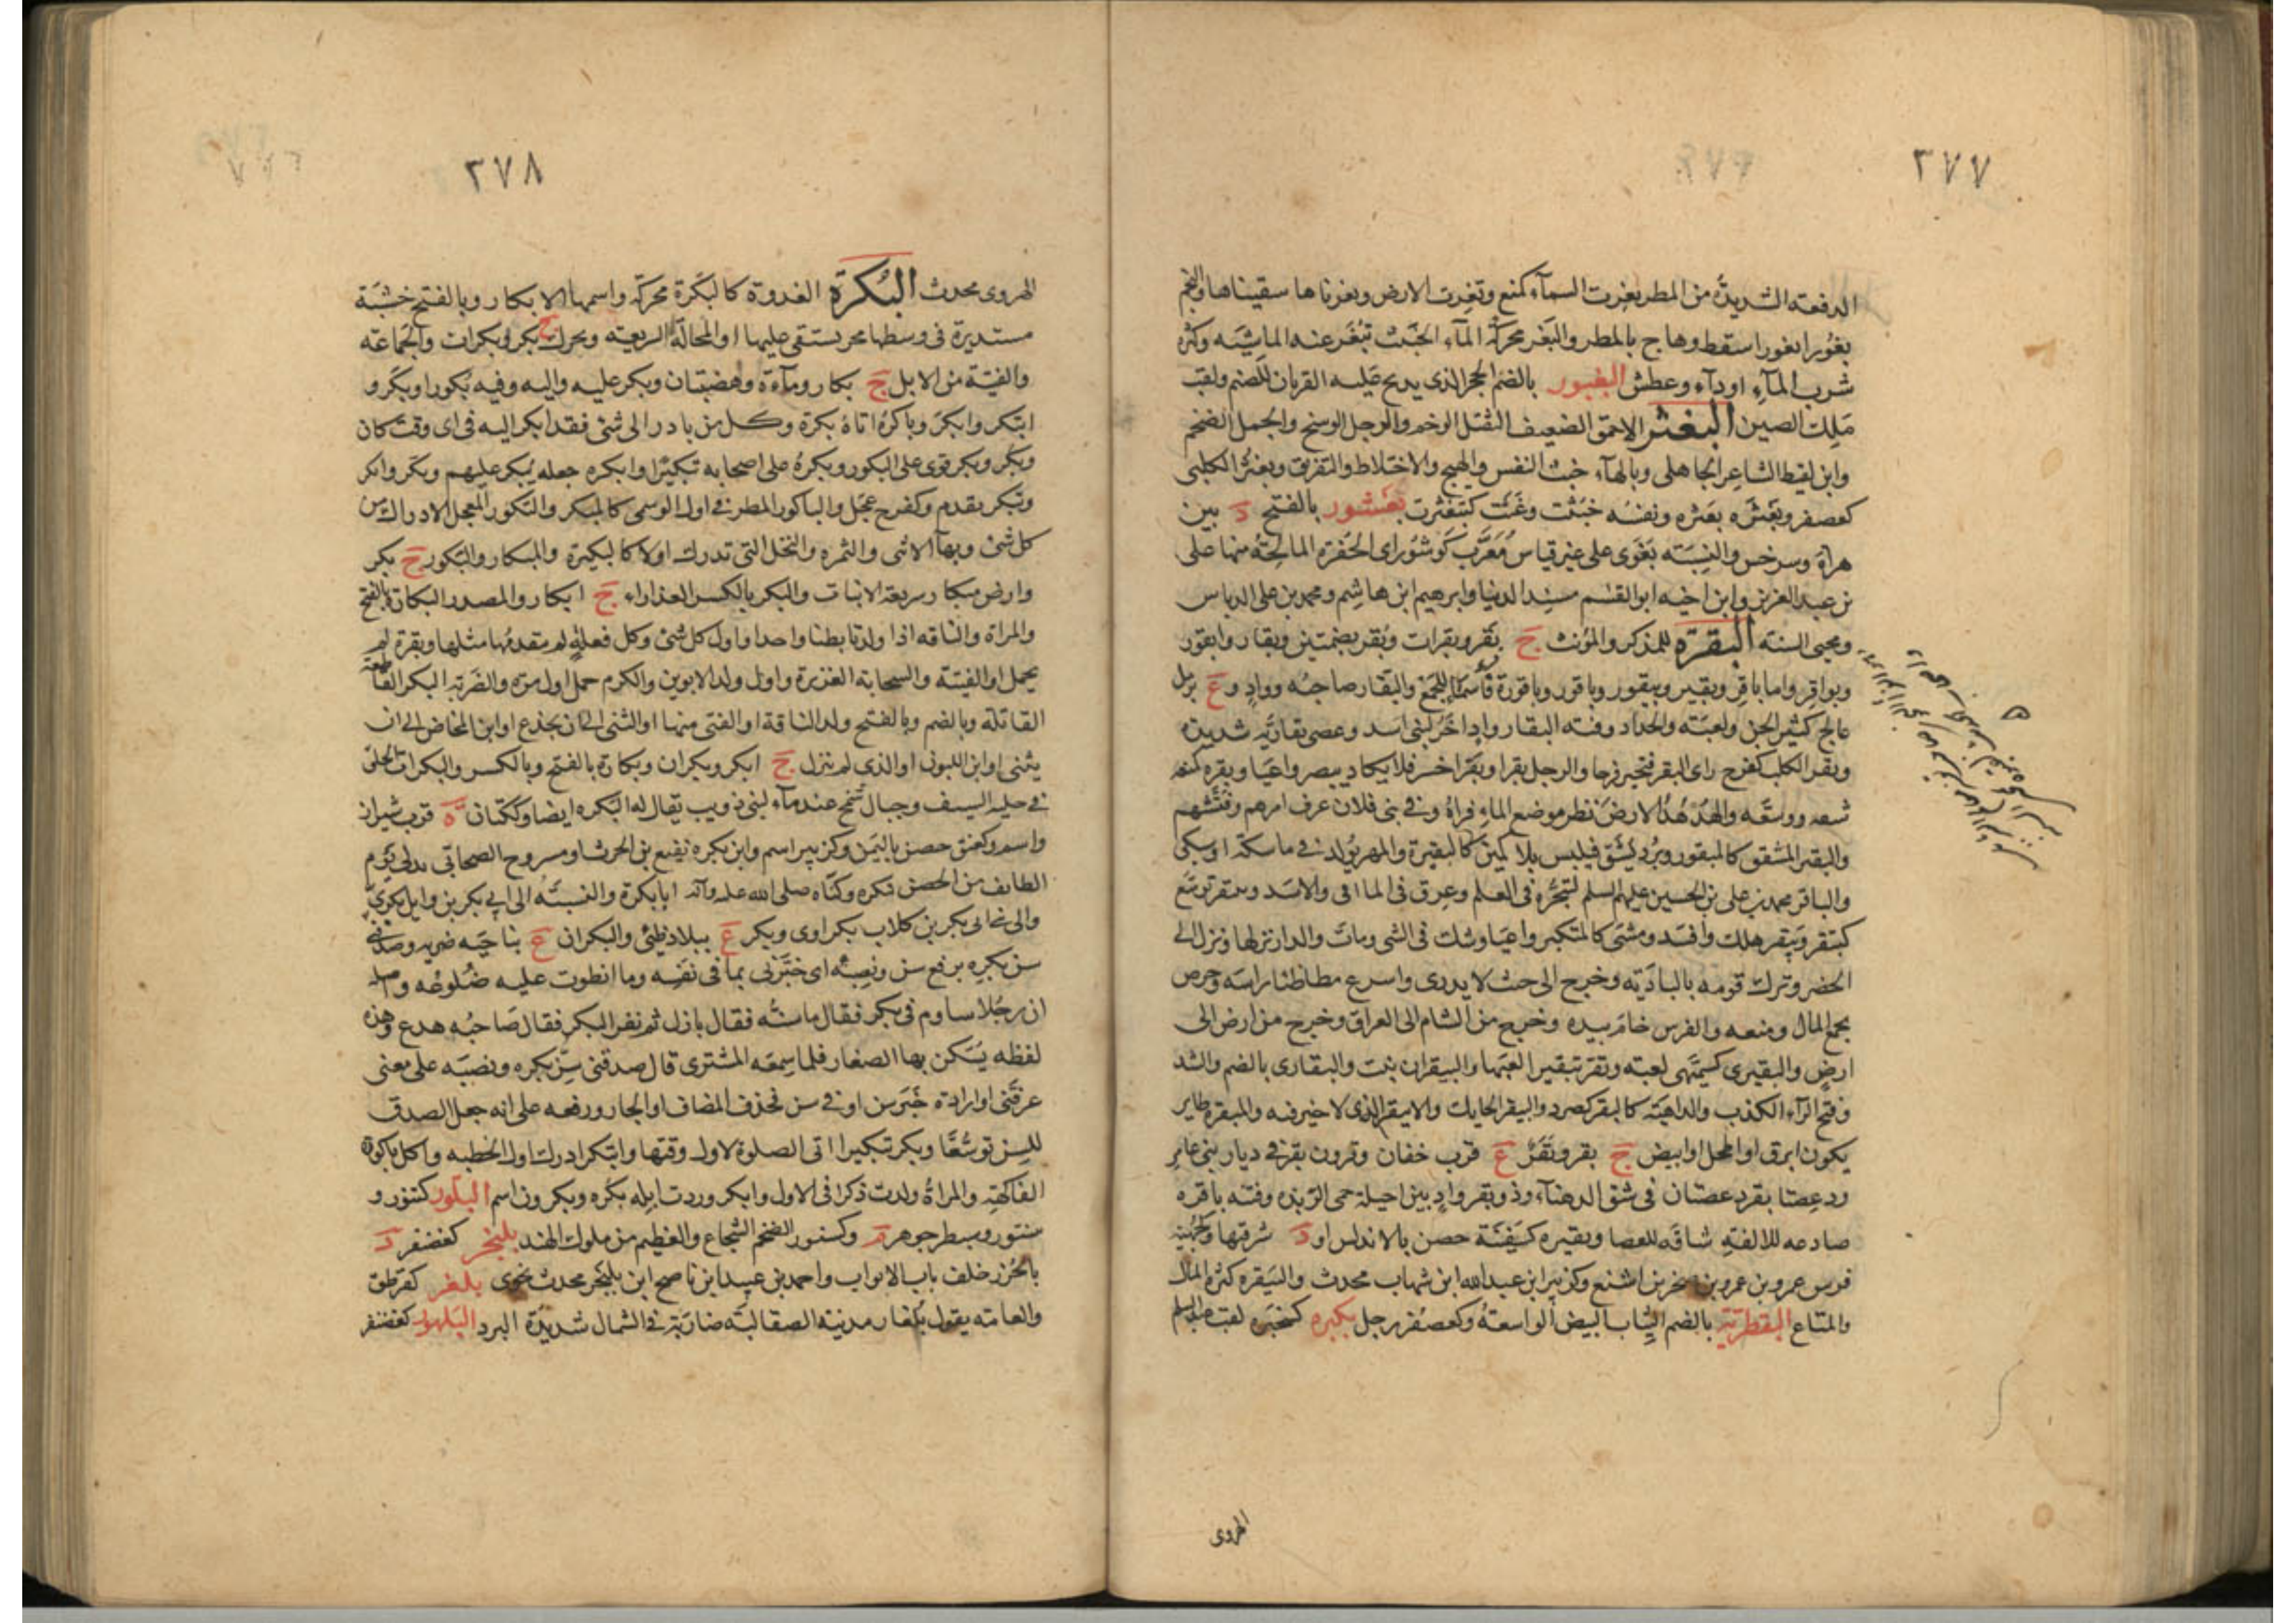 ٣٧٧
الدفعة الشديدة من المطر بغرت السماء كمنع وبغرت الارض وبغرناها سقيناها والنجم
بغورا بغورا سقط وهاج بالمطر والبغر محركة الماء الخبث تبغر عنه الماشية وكثرة
شرب الماء او داء وعطش البغبور بالضم الحجر الذي يذبح عليه القربان للصنم ولقب
ملك الصين البغثر الاحمق الضعيف الثقل الوخم والرجل الوسخ والجمل الضخم
وابن لقيط الشاعر الجاهلي وبالهاء خبث النفس والهيج والاختلاط والتفريق وبغثر الكلبي
كعصفر وبغثره بعثره ونفسه خبثت وغثت كتبغثرت بغشور بالفتح د بين
هراة وسرخس والنسبة بغوى على غير قياس معرب كوشور اى الحفرة المالحة منها على
بن عبد العزيز وابن اخيه ابو القسم مسند الدنيا وابرهيم ابن هاشم ومحمد بن على الدباس
ومحيى السنة البقرة للمذكر والمؤنث ج بقر وبقرات وبقر بضمتين وبقار وابقور
وبواقر واما باقر وبقير وبيقور وباقور وباقورة فاسماء للجمع والبقار صاحبه وواد و ع برمل
عالج كثير الجن ولعبة والحداد وقنة البقار واد اخر لبنى اسد وعصى بقارية شديدة
وبقر الكلب كفرح راى البقر فتحير فرحا والرجل بقرا وبقرا حسر فلا يكاد يبصر واعيا وبقره كمنعه
شقه ووسعه والهدهد الارض نظر موضع الماء فراه وفى بنى فلان عرف امرهم وفتشهم
والبقير المشقق كالمبقور وبرد يشق فيلبس بلا كمين كالبقيرة والمهر يولد فى ماسكة او سلى
والباقر محمد بن على بن الحسين عليهم السلم لتبحره فى العلم وعرق فى الماقى والاسد وتبقر توسع
كبتقر وبيقر هلك وافسد ومشى كالمتكبر واعيا وشك فى الشى ومات والدار نزلها ونزل الى
الحضر وترك قومه بالبادية وخرج الى حيث لا يدرى واسرع مطاطئا راسه وحرص
بجمع المال ومنعه والفرس خام بيده وخرج من الشام الى العراق وخرج من ارض الى
ارض والبقيرى كسميهى لعبة وبقر تبقيرا لعبها والبيقران نبت والبقارى بالضم والشد
وفتح الراء الكذب والداهية كالبقر كصرد والبيقر الحايك والابيقر الذى لا خير فيه والمبقرة طاير
يكون ابرق او اكحل او ابيض ج بقر وبقر ع قرب خفان وقرون بقر فى ديار بنى عامر
ودعصتا بقر دعصتان فى شق الدهناء وذو بقر واد بين اخيلة حمى الربذة وفتنة باقرة
صادعة للالفة شاقة للعصا وبقيرة كسفينة حصن بالاندلس او د شرقيها وكجهينة
فرس عمرو بن عمرو بن صخر بن اشنع وكزبير ابن عبد الله ابن شهاب محدث والبيقرة كثرة المال
والمتاع البقطرية بالضم الثياب البيض الواسعة وكعصفر رجل بكبره كخنجره لقب عبد السلم
الهروى
٣٧٨
الهروى محدث البكرة الغدوة كالبكرة محركة واسمها الابكار وبالفتح خشبة
مستديرة فى وسطها محز يستقى عليها او المحالة السريعة ويحرك ج بكر وبكرات والجماعة
والفتية من الابل ج بكار وماءة وهضبتان وبكر عليه واليه وفيه بكورا وبكر و
ابتكر وابكر وباكره اتاه بكرة وكل من بادر الى شئ فقد ابكر اليه فى اى وقت كان
وبكر وبكر قوى على البكور وبكره على اصحابه تبكيرا وابكره جعله يبكر عليهم وبكر وابكر
وتبكر تقدم وكفرح عجل والباكور المطر فى اول الوسمى كالمبكر والبكور المعجل الادراك من
كل شئ وبهاء الانثى والثمره والنخل التى تدرك اولا كالبكيرة والمبكار والبكور ج بكر
وارض مبكار سريعة الانبات والبكر بالكسر العذراء ج ابكار والمصدر البكارة بالفتح
والمراة والناقه اذا ولدتا بطنا واحدا واول كل شئ وكل فعلة لم يتقدمها مثلها وبقرة لم
يحمل او الفتية والسحابة الغزيرة واول ولد الابوين والكرم حمل اول مرة والضربة البكر القاطعة
القاتلة وبالضم وبالفتح ولد الناقة او الفتى منها او الثنى الى ان يجذع او ابن المخاض الى ان
يثنى او ابن اللبون او الذى لم يبزل ج ابكر وبكران وبكارة بالفتح وبالكسر والبكرات الحلق
فى حلية السيف وجبال شمخ عند ماء لبنى ذويب يقال له البكره ايضا وككتان ة قرب شيراز
واسم وكعنق حصن باليمن وكزبير اسم وابن بكره نفيع بن الحرث او مسروح الصحابى تدلى يوم
الطايف من الحصن ببكرة وكناه صلى الله عليه وآله ابا بكرة والنسبة الى ابى بكر بن وايل بكرى
والى بنى ابى بكر بن كلاب بكراوى وبكر ع ببلاد طيئ والبكران ع بناحية ضرية وصدقنى
سن بكره برفع سن ونصبه اى خبرنى بما فى نفسه وما انطوت عليه ضلوعه واصله
ان رجلا ساوم فى بكر فقال ما سنه فقال بازل ثم نفر البكر فقال صاحبه هدع وهذه
لفظه يسكن بها الصغار فلما سمعه المشترى قال صدقنى سن بكره ونصبه على معنى
عرفنى او ارادة خبر سن او فى سن فحذف المضاف او الجار ورفعه على انه جعل الصدق
للسن توسعا وبكر تبكيرا اتى الصلوة لاول وقتها وابتكر ادرك اول الخطبه واكل باكورة
الفاكهة والمراة ولدت ذكرا فى الاول وابكر وردت ابله بكره وبكرون اسم البلور كتنور و
سنور وسبطر جوهر م وكسنور الضخم الشجاع والعظيم من ملوك الهند بلنجر كغضنفر د
بالخزر خلف باب الابواب واحمد بن عبيد ابن ناصح ابن بلنجر محدث نحوى بلغر كقرطق
والعامه يقول بلغار مدينة الصقالبة ضاربة فى الشمال شديدة البرد البلهور كغضنفر